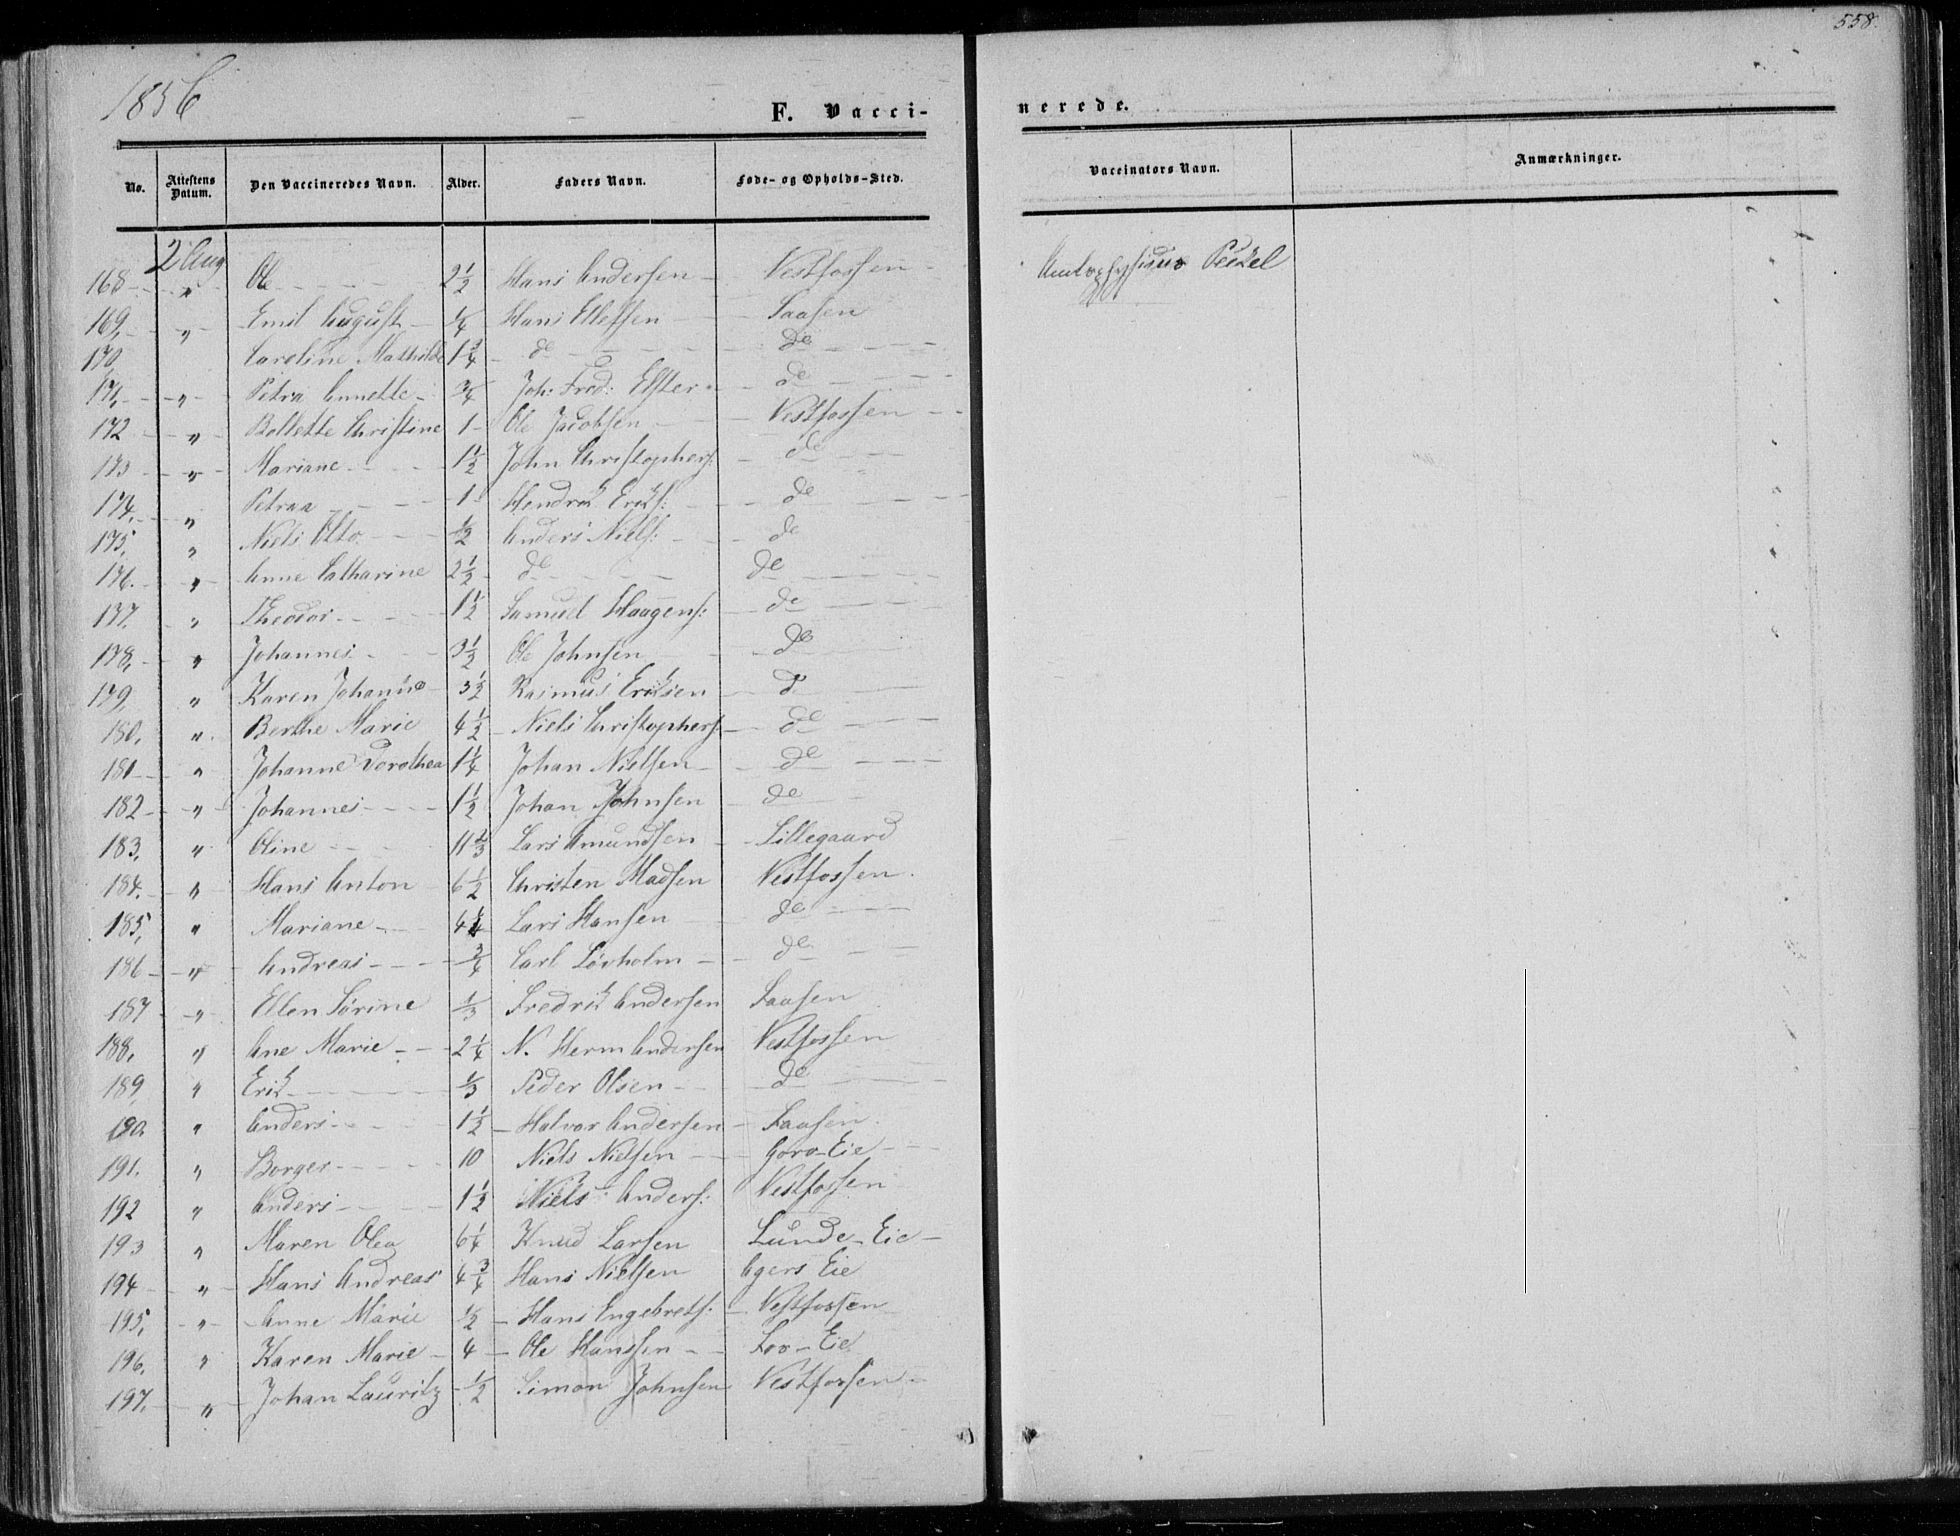 558.
1856
F. Vacci-
nerede.
No. Attestens Datum. Den Vaccineredes Navn. Alder. Faders Navn. Føde- og Opholds-Sted. Vaccinators Navn. Anmærkninger.
2 Aug
168 " Ole 2 1/2 Hans Andersen Vestfossen Amtsphysicus Peckel
169, " Emil August 1/4 Hans Ellefsen Faasen
170, Caroline Mathilde 1 3/4 do do
171, " Petra Annette 3/4 Joh: Fred: Elster do
172 " Bollette Christine 1 Ole Jacobsen Vestfossen
173 " Mariane 1 1/2 John Christophers: do
174, " Petraa 1 Hendrik Eriks: do
175, " Niels Otto 1/2 Anders Niels: do
176. " Anne Catharine 2 1/2 do do
177. " Theodor 1 1/2 Samuel Haagens: do
178, " Johannes 3 1/2 Ole Johnsen do
179, " Karen Johanne 3 1/2 Rasmus Eriksen d
180, " Berthe Marie 4 1/2 Niels Christophers: do
181 " Johanne Dorothea 1 1/4 Johan Nielsen do
182 " Johannes 1 1/2 Johan Johnsen do
183, " Oline 11 2/3 Lars Amundsen Lillegaard
184. " Hans Anton 6 1/2 Christen Madsen Vestfossen.
185, " Mariane 4 1/4 Lars Hansen do
186 " Andreas 3/4 Carl Løvholm do
187 " Ellen Sørine 1/3 Fredrik Andersen Faasen
188, " Ane Marie 2 1/4 N. Herm Andersen Vestfossen
189, " Erik 1/3 Peder Olsen do
190. " Anders 1 1/2 Halvor Andersen Faasen
191. " Borger 10 Niels Nielsen Goro-Eie
192 " Anders 1 1/2 Niels Anders: Vestfossen
193 " Maren Olea 6 1/4 Knud Larsen Lunde-Eie
194 " Hans Andreas 4 3/4 Hans Nielsen Agers Eie
195, " Anne Marie 1/2 Hans Engebrets: Vestfossen
196. " Karen Marie 4 Ole Hanssen Foo-Eie
197. " Johan Lauritz 1/2 Simon Johnsen Vestfossen